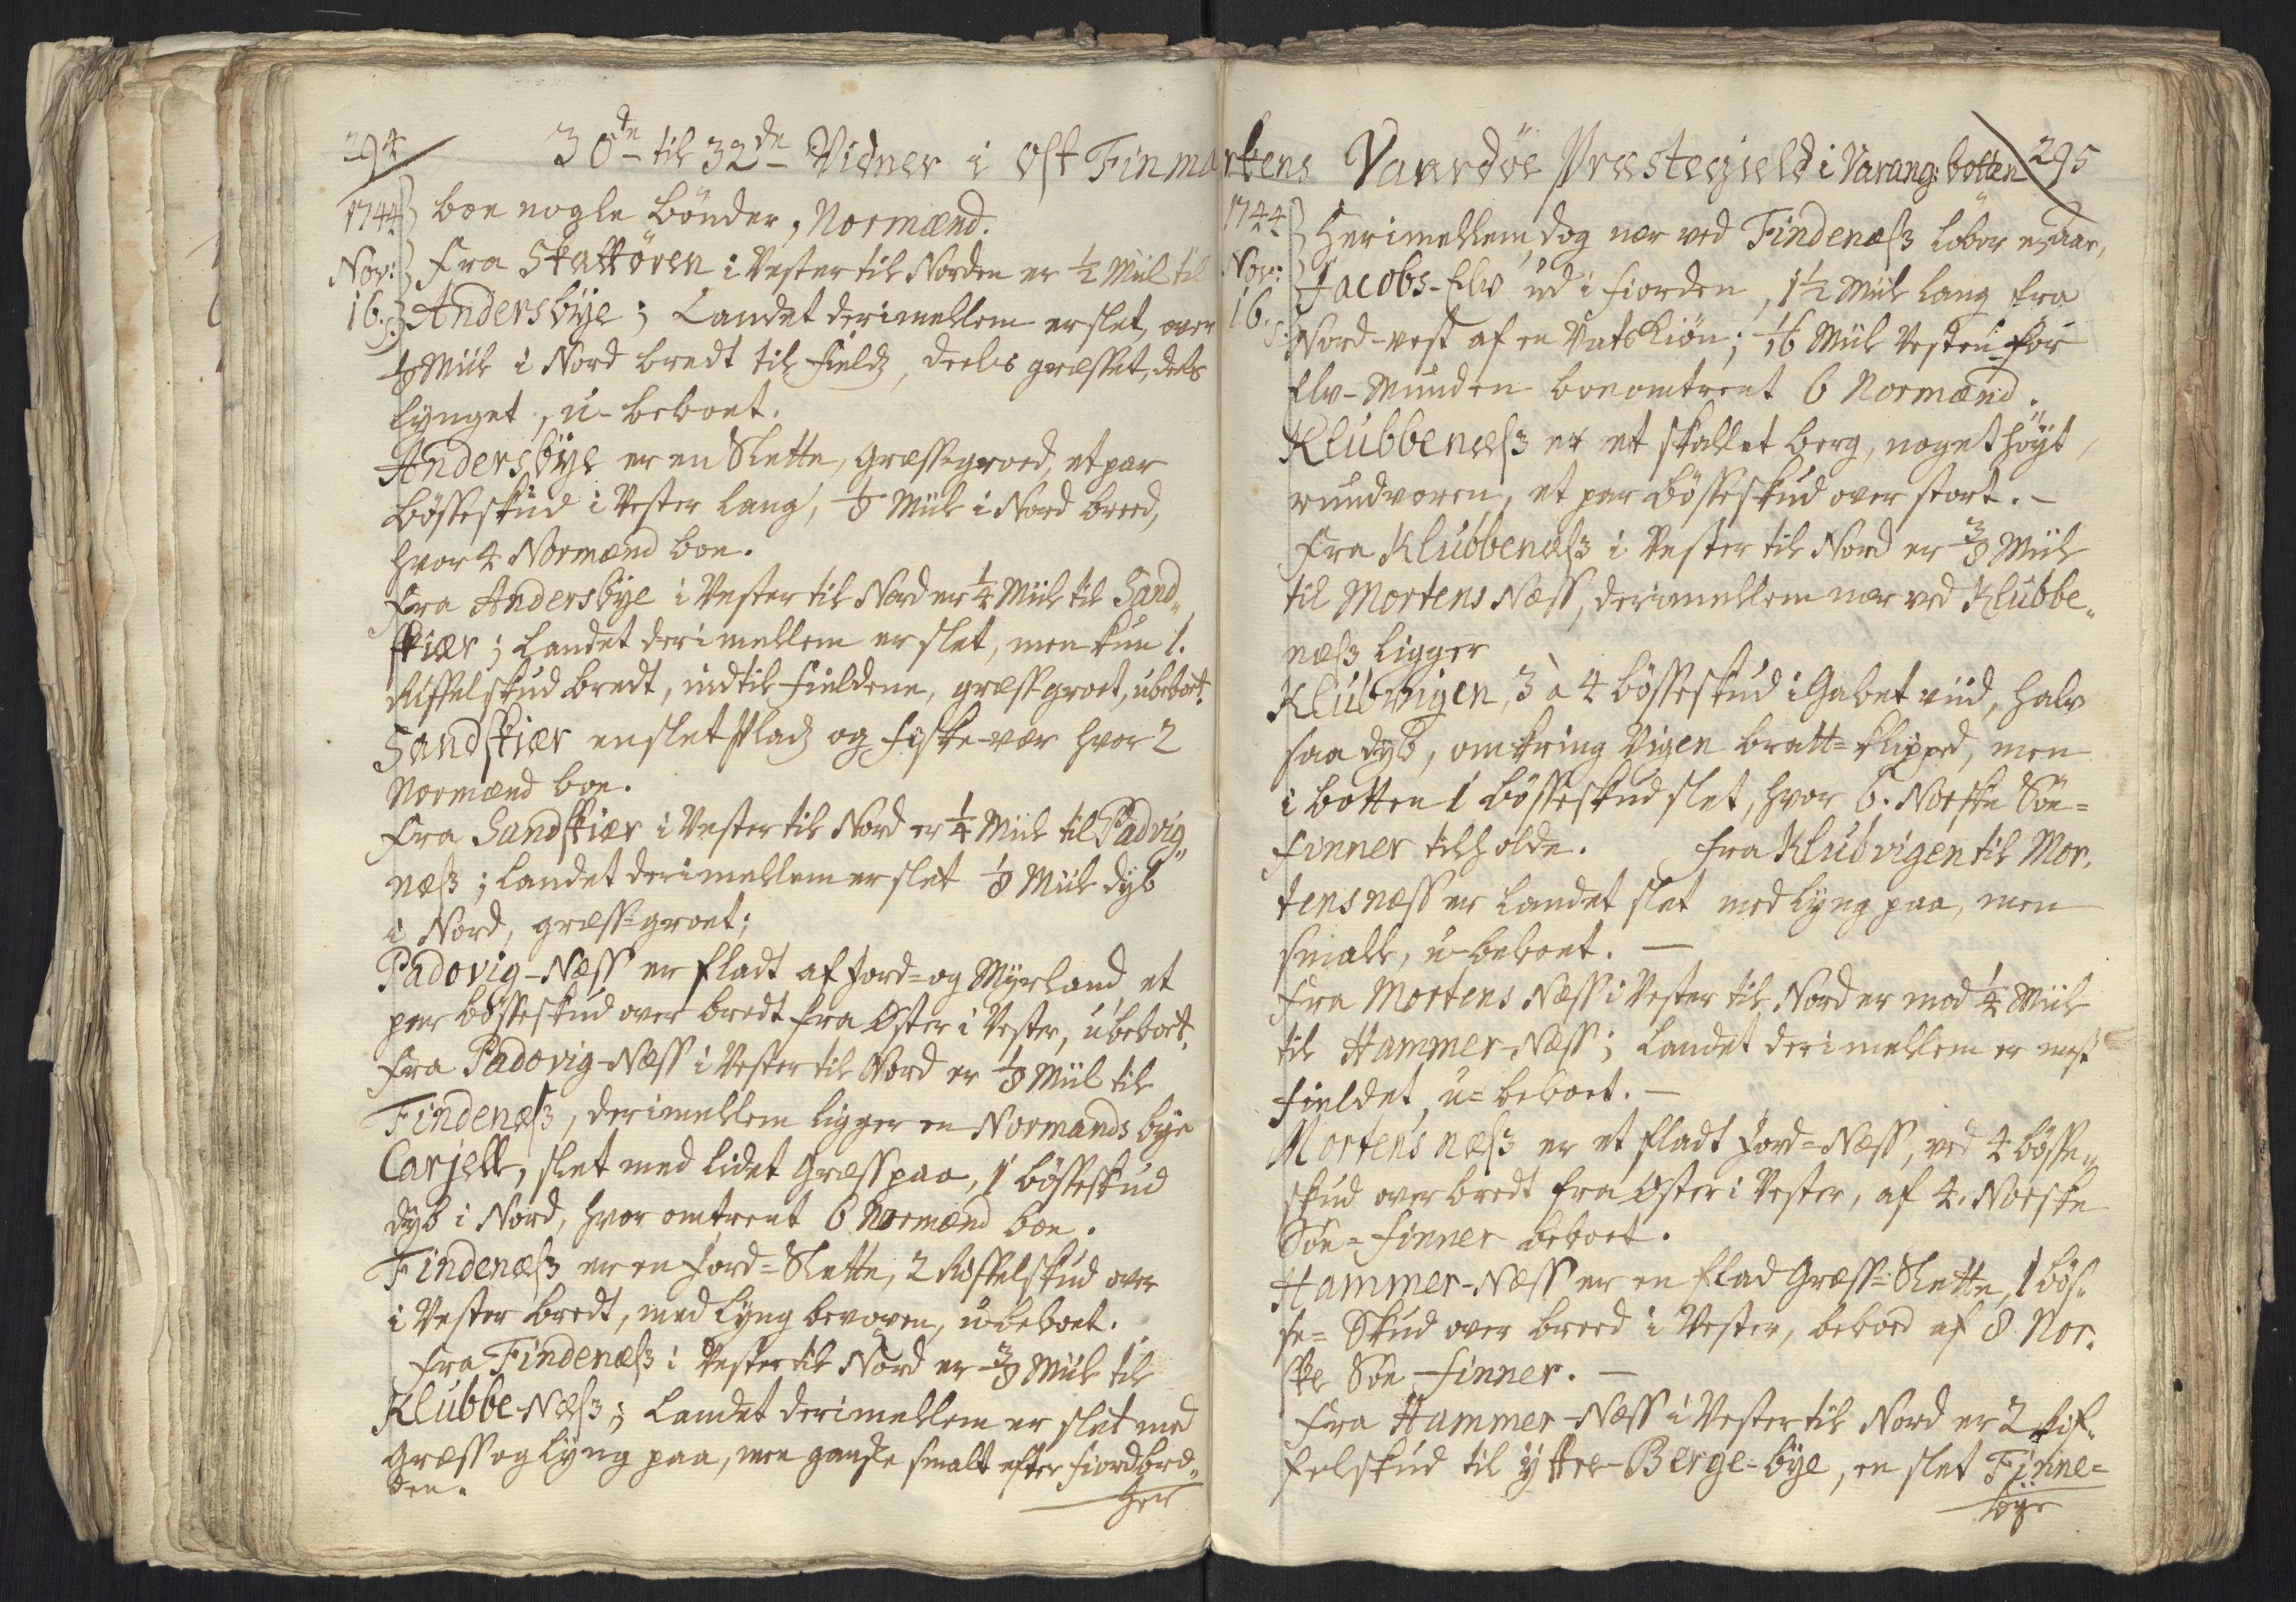 294
30de til 32de Vidner i Ost Finma
1744 boe nogle bönder, Normænd.
Nov: Fra Skattören i Vester til Norden er ½ Miil til
16. Andersbÿe; Landet derimellem er slet, over
⅛ Miil i Nord bredt til field, deels græsset, deels
lynget, u-beboet.
Andersbÿe er en Slette, græss-groed, et par
bösseskud i Vester lang, ⅛ Miil i Nord breed,
hvor 4 Normænd boe.
Fra Andersbÿe i Vester til Nord er ¼ Miil til Sand„
skiær; Landet derimellem er slet, men kun 1.
Riffelskud bredt, indtil fieldene, græss-groet, ubeboet.
Sandskiær en slet Plads og fiske-vær hvor 2
Normænd boe.
Fra Sandskiær i Vester til Nord er ¼ Miil til Padvig„
næss; Landet derimellem er slet ⅛ Miil dyb
i Nord, græss-groet;
Padovig-Næss er fladt af Jord- og Myrland et
par bösseskud over bredt fra Öster i Vester, ubeboet.
Fra Padovig-Næss i Vester til Nord er ⅛ Miil til
Findenæss, derimellem ligger en Normands bye
Carjell, slet med lidet Græss paa, 1 bösseskud
dyb i Nord, hvor omtrent 6 Normænd boe.
Findenæss er en Jord-Slette, 2 Riffelskud over
i Vester bredt, med Lyng bevoxen, u-beboet.
Fra Findenæss i Vester til Nord er ⅜ Miil til
Klubbe-Næss; Landet derimellem er slet med
Græss og Lyng paa, men ganske smalt efter fiordbred„
den.
Her
rkens Vaardöe Præstegield i Varang: botten 295
1744 Herimellem, dog nær ved Findenæss löber
Nov: Jacobs-Elv ud i fiorden, 1½ Miil lang fra
16. Nord-vest af en Vatskiön; 1/16 Miil Vesten for
Elv-Munden boe omtrent 6 Normænd.
Klubbenæss er et skallet berg, noget höyt,
rundvoren, et par bösseskud over stort. –
Fra Klubbenæss i Vester til Nord er ⅜ Miil
til Mortens Næss, derimellem nær ved Klubbe„
næss ligger
Klubvigen, 3 à 4 bösseskud i Gabet viid, halv
saa dyb, omkring Vigen bratt-klipped, men
i botten 1 bösseskud slet, hvor 6. Norske Söe-
finner tilholde. Fra Klubvigen til Mor.
tensnæss er Landet slet med lyng paa, men
smalt, u-beboet. –
Fra Mortens Næss i Vester til Nord er mod ¼ Miil
til Hammer-Næss; Landet derimellem er mest
fieldet, u-beboet. –
Mortens næss er et fladt Jord-Næss, ved 4 bösse„
skud over bredt fra Öster i Vester, af 4. Norske
Söe-finner beboet.
Hammer-Næss er en flad Græss-Slette, 1 bös-
se-Skud over breed i Vester, beboed af 8 Nor.
ske Söe-finner. –
Fra Hammer-Næss i Vester til Nord er 2 Rif-
felskud til ÿttre-Berge-bÿe, en slet Finne-
bÿe